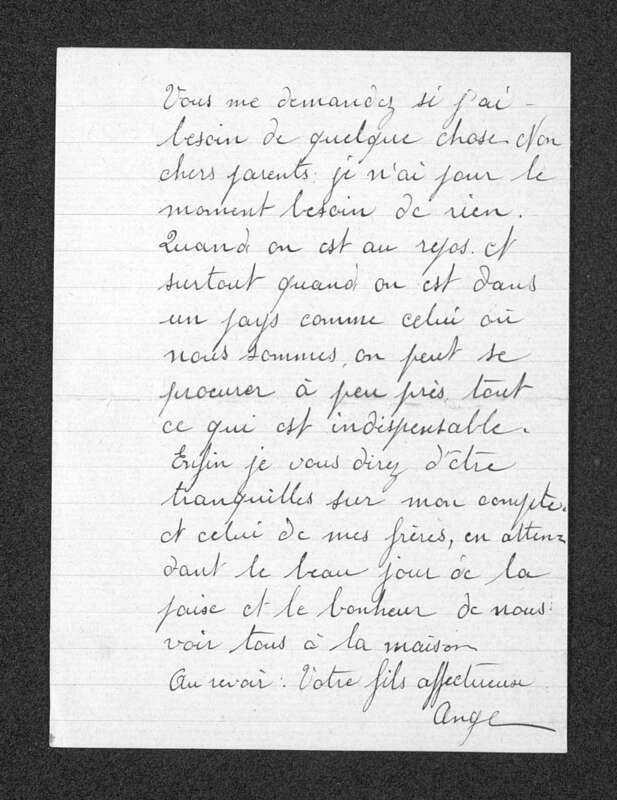 Vous me demandez si j'ai -
besoin de quelque chose. Non
chers parents. je n'ai pour le
moment besoin de rien.
Quand on est au repos. et
surtout quand on est dans
un pays comme celui où
nous sommes, on peut se
procurer à peu près tout
ce qui est indispensable.
Enfin je vous direz d'être
tranquilles sur mon compte.
et celui de mes frères, en atten=
dant le beau jour de la
paise et le bonheur de nous
voir tous à la maison
Au revoir. Votre fils affectueux
Ange